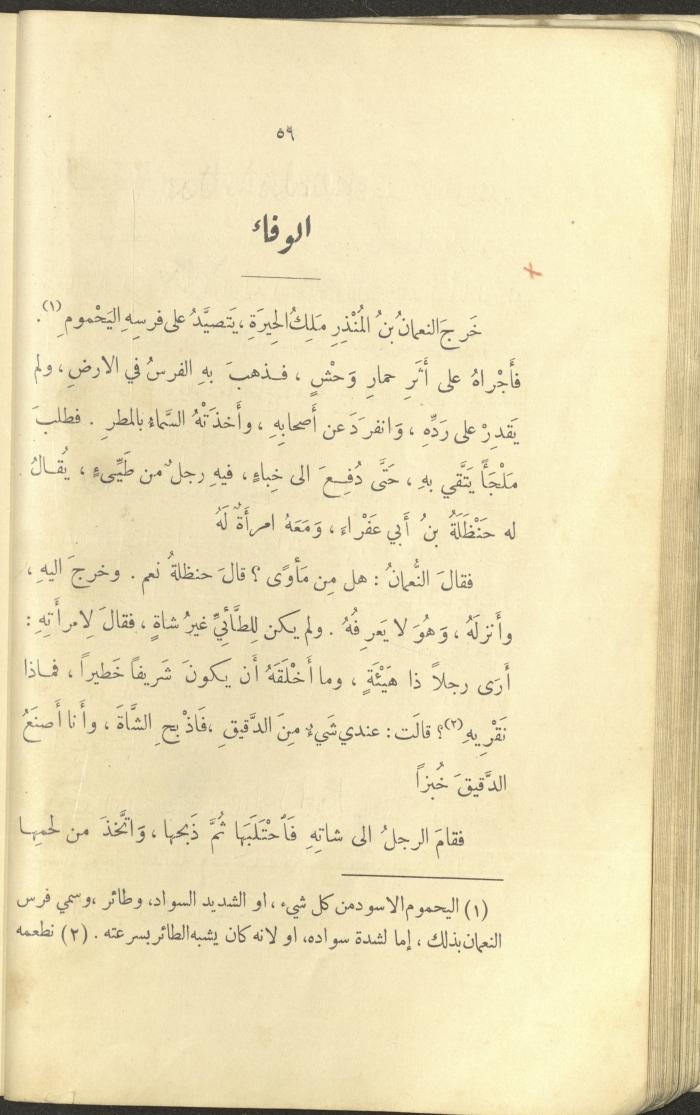 ٥٩
الوفاء
خَرجَ النعمانُ بنُ المُنْذِرِ مَلِكُ الحِيرَةِ ، يَتصيَّدُ على فرسِهِ اليَحْمومِ (١) .
فأَجْراهُ على أَثَرِ حمارِ وَحْشٍ ، فـذهبَ بهِ الفرسُ في الارضِ ، ولم
يَقدِرْ على رَدِّهِ ، وَانفرَدَ عن أَصحابِهِ ، وأَخذَتْهُ السَّماءُ بالمطرِ . فطلبَ
مَلْجَأً يَتَّقي بهِ ، حَتَّى دُفِـعَ الى خِباءٍ ، فيهِ رجلٌ من طَيِّىءٍ ، يُقـالُ
له حَنْظَلَةُ بنُ أَبي عَفْراء ، وَمَعَهُ امرأَةٌ لَهُ
فقالَ النُّعمانُ : هل مِن مَأوًى ؟ قالَ حنظلةُ نعم . وخرجَ اليهِ ،
وأَنزلَهُ ، وَهُوَ لا يَعرِفُهُ . ولم يكن لِلطَّائِيِّ غيرُ شاةٍ ، فقالَ لِامرأَتِهِ :
أَرَى رجلاً ذا هَيْئَةٍ ، وما أَخْلَقَهُ أَن يكونَ شَريفاً خَطيراً ، فمـاذا
نَقْرِيهِ (٢) ؟ قالَت : عندي شَيءٌ مِنَ الدَّقيقِ ، فَاذْبحِ الشَّاةَ ، وأَنا أَصنَعُ
الدَّقيقَ خُبزاً
فقامَ الرجلُ الى شاتِهِ فَاحْتَلَبَها ثُمَّ ذَبحها ، وَاتَّخذَ من لحمِهـا
(١) اليحموم الاسود من كل شيء ، او الشديد السواد، وطائر ، وسمي فرس
النعمان بذلك ، إما لشدة سواده، او لانه كان يشبه الطائر بسرعته . (٢) نطعمه